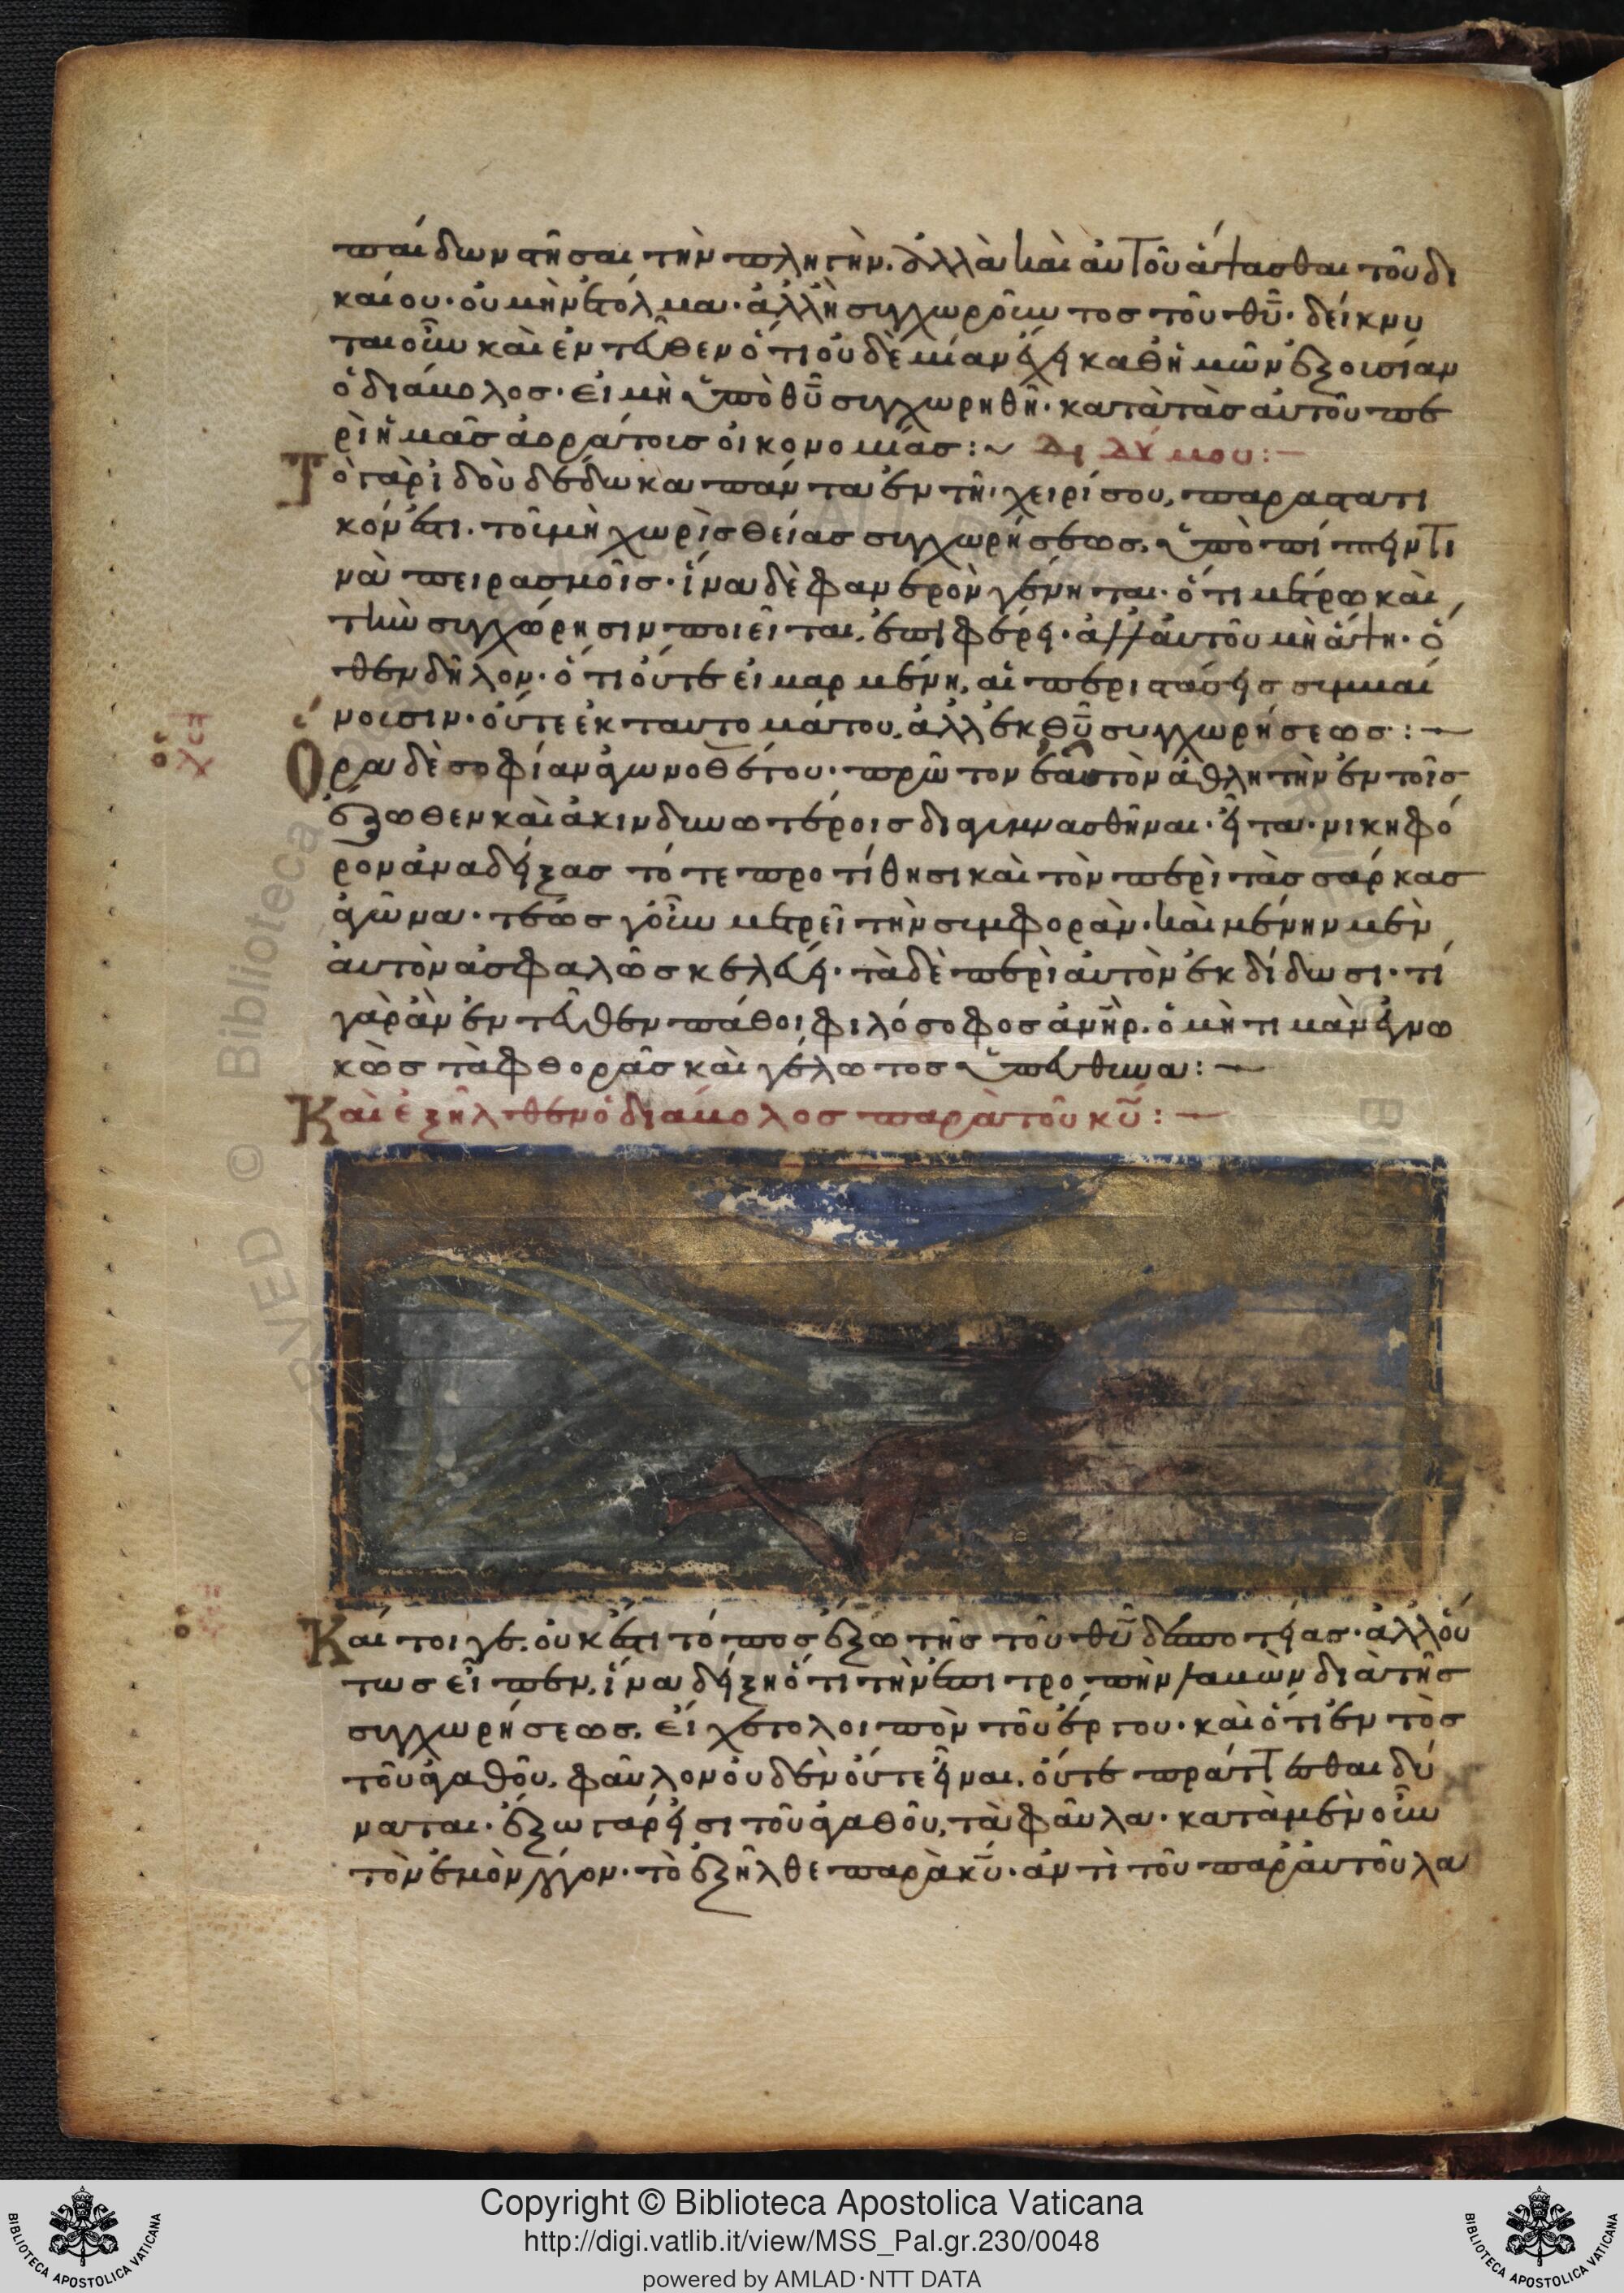 παίδων στῆσαι τὴν πληγὴν. ἀλλὰ καὶ αὐτοῦ ἅψασθαι τοῦ δι
καίου· οὐ μὴν ἐτόλμα· ἀλλ' ἢ συγχωροῦντος τοῦ θυ· δείκνυ
ται οὖν καὶ ἐντεῦθεν ὅτι οὐδὲ μίαν ἔχει καθ' ἡμῶν ἐξουσίαν
ὁ διάβολος· εἰ μὴ ὑπὸ θυ συγχωρηθῆ· κατὰ τὰς αὐτοῦ πε
ρὶ ἡμᾶς ἀορράτοις οἰκονομίας :~ Διδύμου :—
Τὸ γὰρ ἰδοὺ δέδωκα πάντα ἐν τῆ χειρί σου, παραστατι
κόν ἐστι. τοῦ μὴ χωρὶς θείας συγχωρήσεως, ὑποπίπτειν τι
νὰ πειρασμοῖς· ἵνα δὲ φανερὸν γένηται· ὅτι μέτρω καὶ
τὴν συγχώρησιν ποιεῖται, ἐπιφέρει· ἀλλ' αὐτοῦ μὴ ἅψη· ὅ
θεν δῆλον· ὅτι οὔτε εἱμαρμένη, αἱ περιστάσεις συμβαί
νουσιν· οὔτε ἐκ ταυτομάτου, ἀλλ' ἐκ θυ συγχωρήσεως :—
Ὅρα δὲ σοφίαν ἀγωνοθέτου· πρῶτον ἑαυτὸν ἀθλητὴν ἐν τοῖς
ἔξωθεν καὶ ἀκινδυνωτέροις διαγυμνασθῆναι· εἶτα νικηφό
ρον ἀναδείξας τότε προτίθησι καὶ τὸν περὶ τὰς σάρκας
ἀγῶνα· τέως γοῦν μετρεῖ τὴν συμφορὰν· καὶ μένην μὲν
αὐτὸν ἀσφαλῶς κελεύει· τὰ δὲ περὶ αὐτὸν ἐκδίδωσι· τί
γὰρ ἂν ἐντεῦθεν πάθοι φιλόσοφος ἀνὴρ. ὁ μὴ τι κἂν ἐγνω
κὼς τὰ φθορᾶς καὶ γέλωτος ὑπεύθυνα :—
Καὶ ἐξῆλθεν ὁ διάβολος παρὰ τοῦ κυ :—
Καί τοιγε. οὐκ ἔστι τόπος ἔξω τῆς τοῦ θυ δεσποτείας· ἀλλ' οὕ
τως εἶπεν, ἵνα δείξη ὅτι τὴν ἐπιτροπὴν λαβὼν διὰ τῆς
συγχωρήσεως. εἴχετο λοιπὸν τοῦ ἔργου· καὶ ὅτι ἐντὸς
τοῦ ἀγαθοῦ. φαῦλον οὐδὲν οὔτε εἶναι. οὔτε πράττεσθαι δύ
ναται· ἔξω γάρ εἰσι τοῦ ἀγαθοῦ, τὰ φαῦλα· κατὰ μὲν οὖν
τὸν ἐμὸν λόγον· τὸ ἐξῆλθε παρὰ κυ· ἀντὶ τοῦ παρ' αὐτοῦ λα
Copyright © Biblioteca Apostolica Vaticana
http://digi.vatlib.it/view/MSS_Pal.gr.230/0048
powered by AMLAD·NTT DATA
BIBLIOTECA APOSTOLICA VATICANA
BIBLIOTECA APOSTOLICA VATICANA